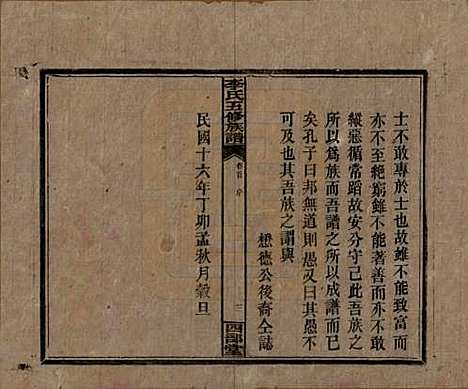 士不敢專於士也故雖不能致富而
亦不至絶窮雖不能著善而亦不能
縱惡循常蹈故安分守己此吾族之
所以爲族而吾譜之所以成譜而已
矣孔子曰邦無道則愚又曰其愚不
可及也其吾族之謂與
懋德公後裔仝誌
民國十六年丁卯孟秋月穀旦
李氏五修族譜
卷首 序
三
四部堂